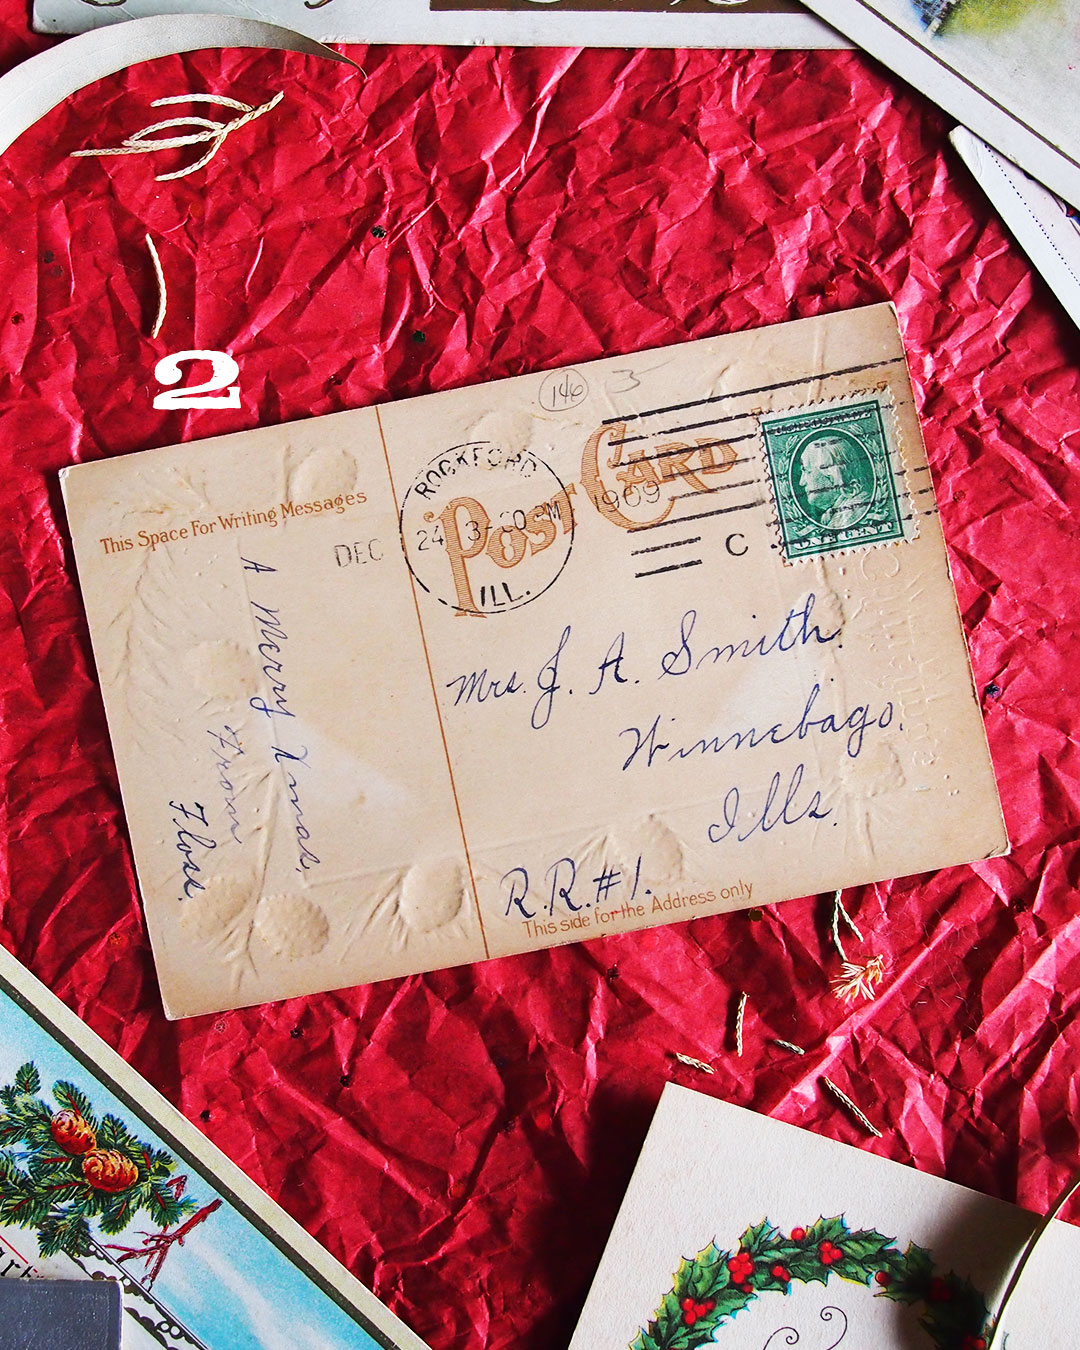 2
146 3
POST CARD
ROCKFORD
DEC 24 3-30 PM 1909
ILL.
C
ONE CENT
This Space For Writing Messages
A Merry Xmas.
From
Floss.
Mrs. J. A. Smith.
Winnebago.
Ills.
R.R.#1.
This side for the Address only